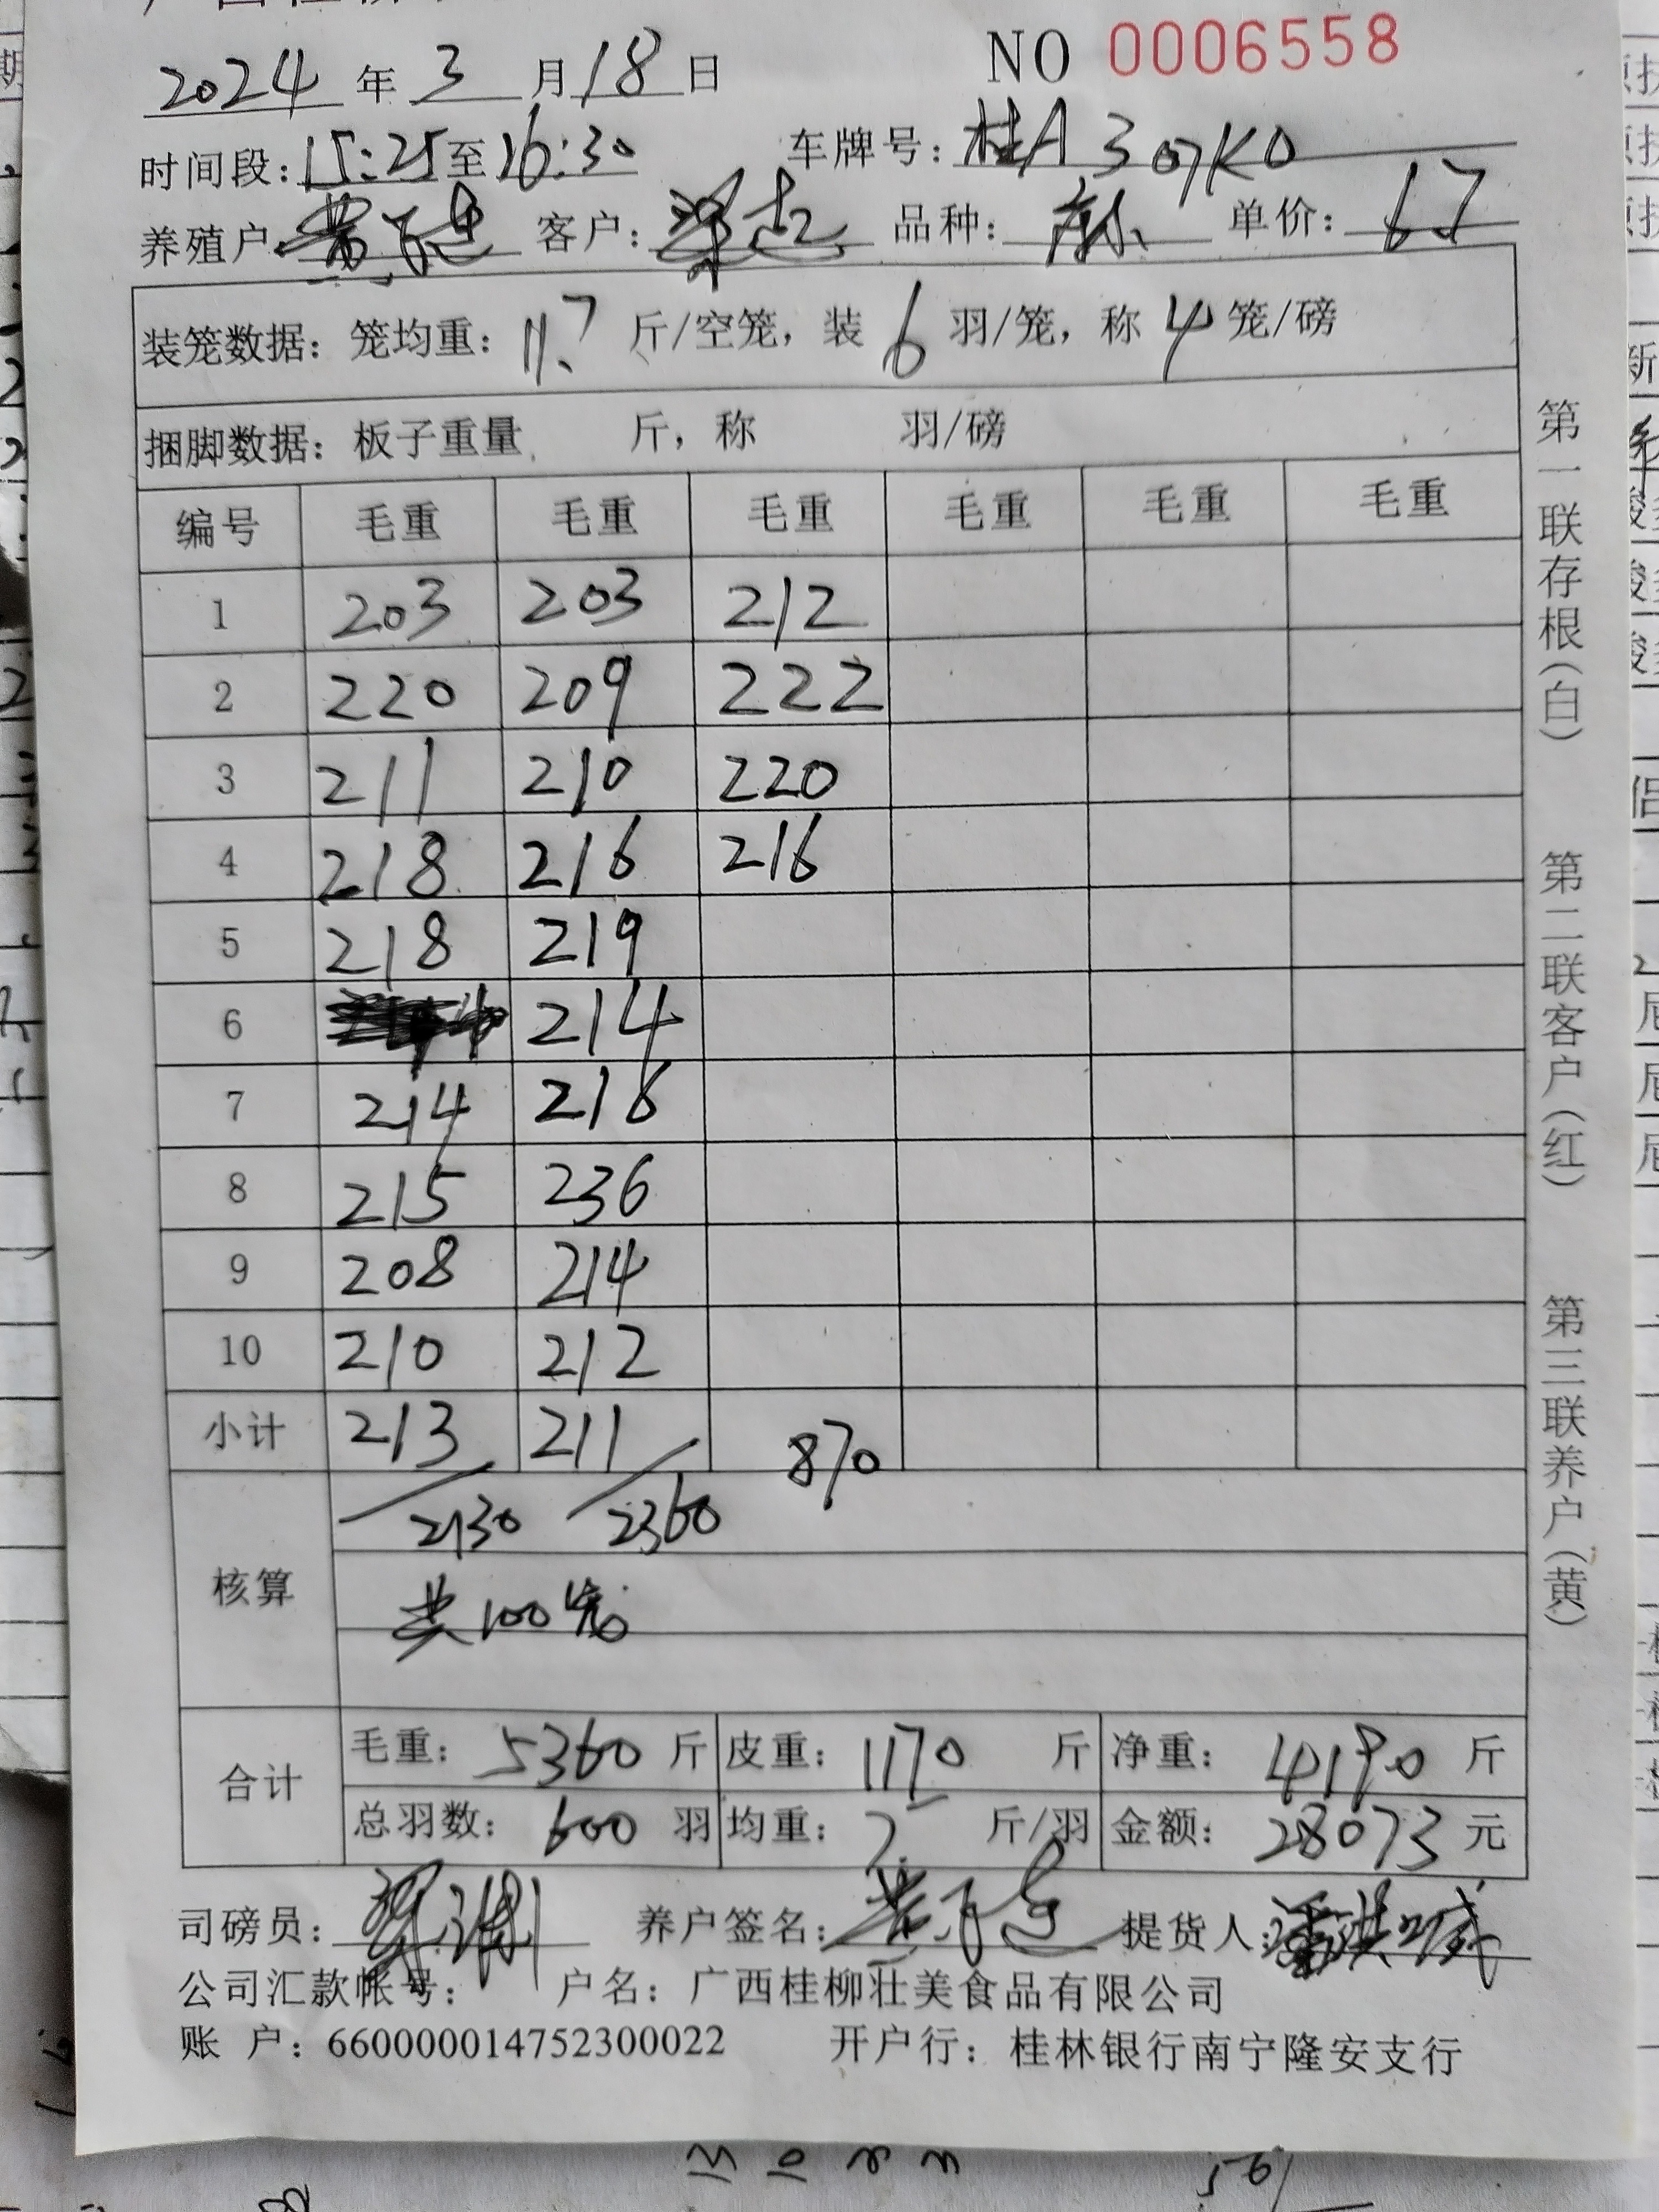 NO 0006558
2024年3月18日
时间段:15:25至16:30 车牌号:桂A307K0
养殖户: 客户: 品种: 单价:6.7
装笼数据:笼均重:11.7斤/空笼,装6羽/笼,称4笼/磅
捆脚数据:板子重量 斤,称 羽/磅
编号 毛重 毛重 毛重 毛重 毛重 毛重
1 203 203 212
2 220 209 222
3 211 210 220
4 218 216 216
5 218 219
6 214
7 214 216
8 215 236
9 208 214
10 210 212
小计 213 211 870
2130 2360
核算
共100笼
合计 毛重:5360斤 皮重:1170斤 净重:4190斤
总羽数:600羽 均重:7斤/羽 金额:28073元
司磅员: 养户签名: 提货人:
公司汇款帐号: 户名:广西桂柳壮美食品有限公司
账户:660000014752300022 开户行:桂林银行南宁隆安支行
第一联存根(白)
第二联客户(红)
第三联养户(黄)